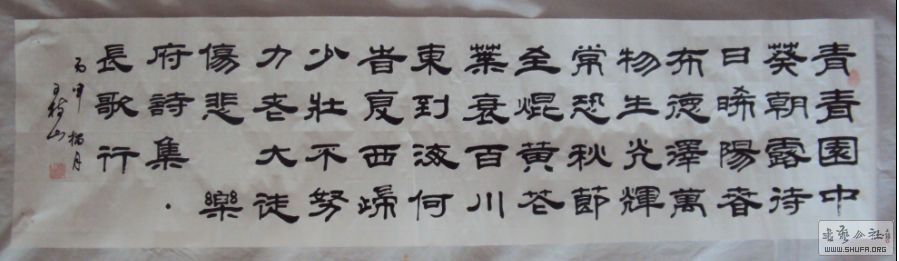 青青園中
葵朝露待
日晞陽春
布德澤萬
物生光輝
常恐秋節
至焜黃花
葉衰百川
東到海何
旹复西歸
少壯不努
力老大徒
傷悲 樂
府詩集·
長歌行
丙申榴月
山
书艺公社
WWW.SHUFA.ORG